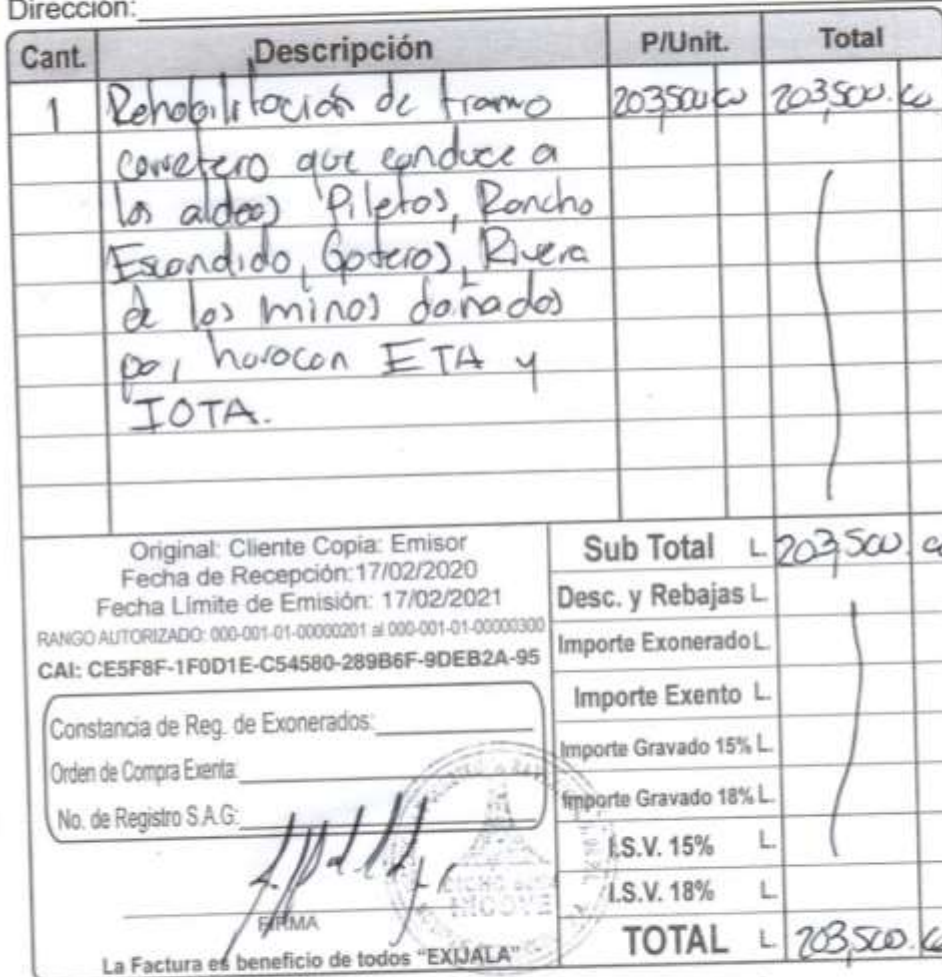 Dirección:
Cant. Descripción P/Unit. Total
1 Rehabilitación de tramo 203,500.00 203,500.00
carretero que conduce a
las aldeas Piletas, Rancho
Escondido, Goteras, Rivera
de las minas dañados
por huracan ETA y
IOTA.
Original: Cliente Copia: Emisor
Fecha de Recepción: 17/02/2020
Fecha Límite de Emisión: 17/02/2021
RANGO AUTORIZADO: 000-001-01-00000201 al 000-001-01-00000300
CAI: CE5F8F-1F0D1E-C54580-289B6F-9DEB2A-95
Constancia de Reg. de Exonerados:
Orden de Compra Exenta:
No. de Registro S.A.G:
FIRMA
La Factura es beneficio de todos "EXIJALA"
Sub Total L. 203,500.00
Desc. y Rebajas L.
Importe Exonerado L.
Importe Exento L.
Importe Gravado 15% L.
Importe Gravado 18% L.
I.S.V. 15% L.
I.S.V. 18% L.
TOTAL L 203,500.00